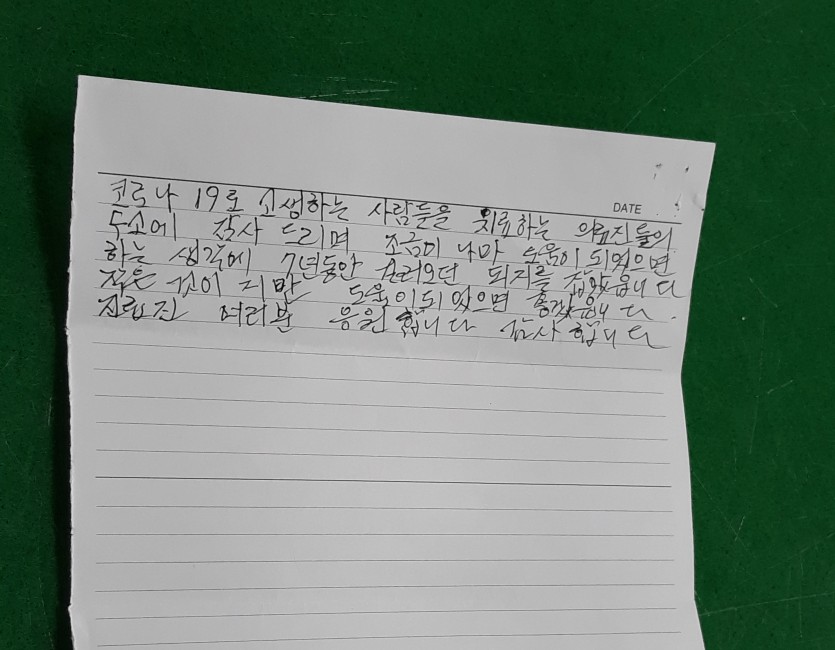 DATE
코로나 19로 고생하는 사람들을 치료하는 의료진들의
노고에 감사 드리며 조금이 나마 도움이 되었으면
하는 생각에 7년동안 길러오던 돼지를 잡았읍니다
작은 것이 지만 도움이되 었으면 좋겠읍니다.
의료진 여러분 응원 합니다 감사 합니다